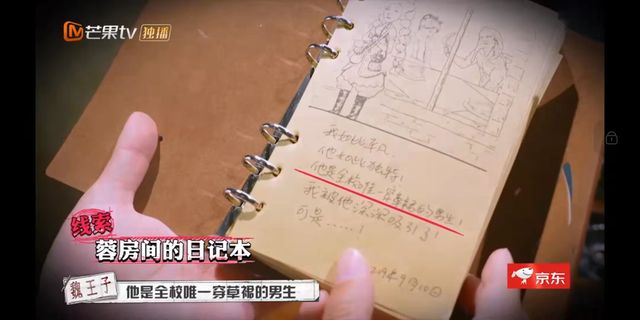 芒果tv 独播
我如此平凡、
他如此独特！
他是全校唯一穿草裙的男生！
我被他深深吸引了！
可是……！
9月10日
线索
蓉房间的日记本
魏王子
他是全校唯一穿草裙的男生
京东